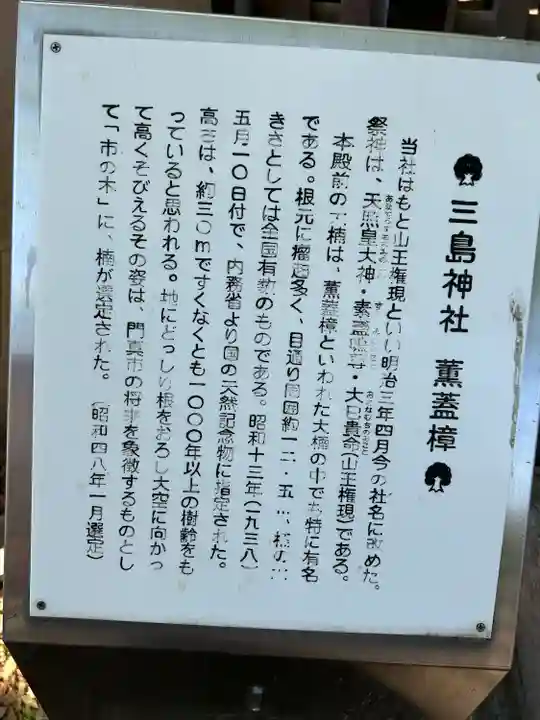 三島神社 薫蓋樟
当社はもと山王権現といい明治三年四月今の社名に改めた。
祭神は、天照皇大神・素盞嗚尊・大己貴命(山王権現)である。
本殿前の大楠は、薫蓋樟といわれた大楠の中でも特に有名
である。根元に瘤起多く、目通り周囲約一二・五
きさとしては全国有数のものである。昭和十三年(一九三八)
五月一〇日付で、内務省より国の天然記念物に指定された。
高さは、約三〇mですくなくとも一〇〇〇年以上の樹齢をも
っていると思われる。地にどっしり根をおろし大空に向かっ
て高くそびえるその姿は、門真市の将来を象徴するものとし
て「市の木」に、楠が選定された。 (昭和四八年一月選定)